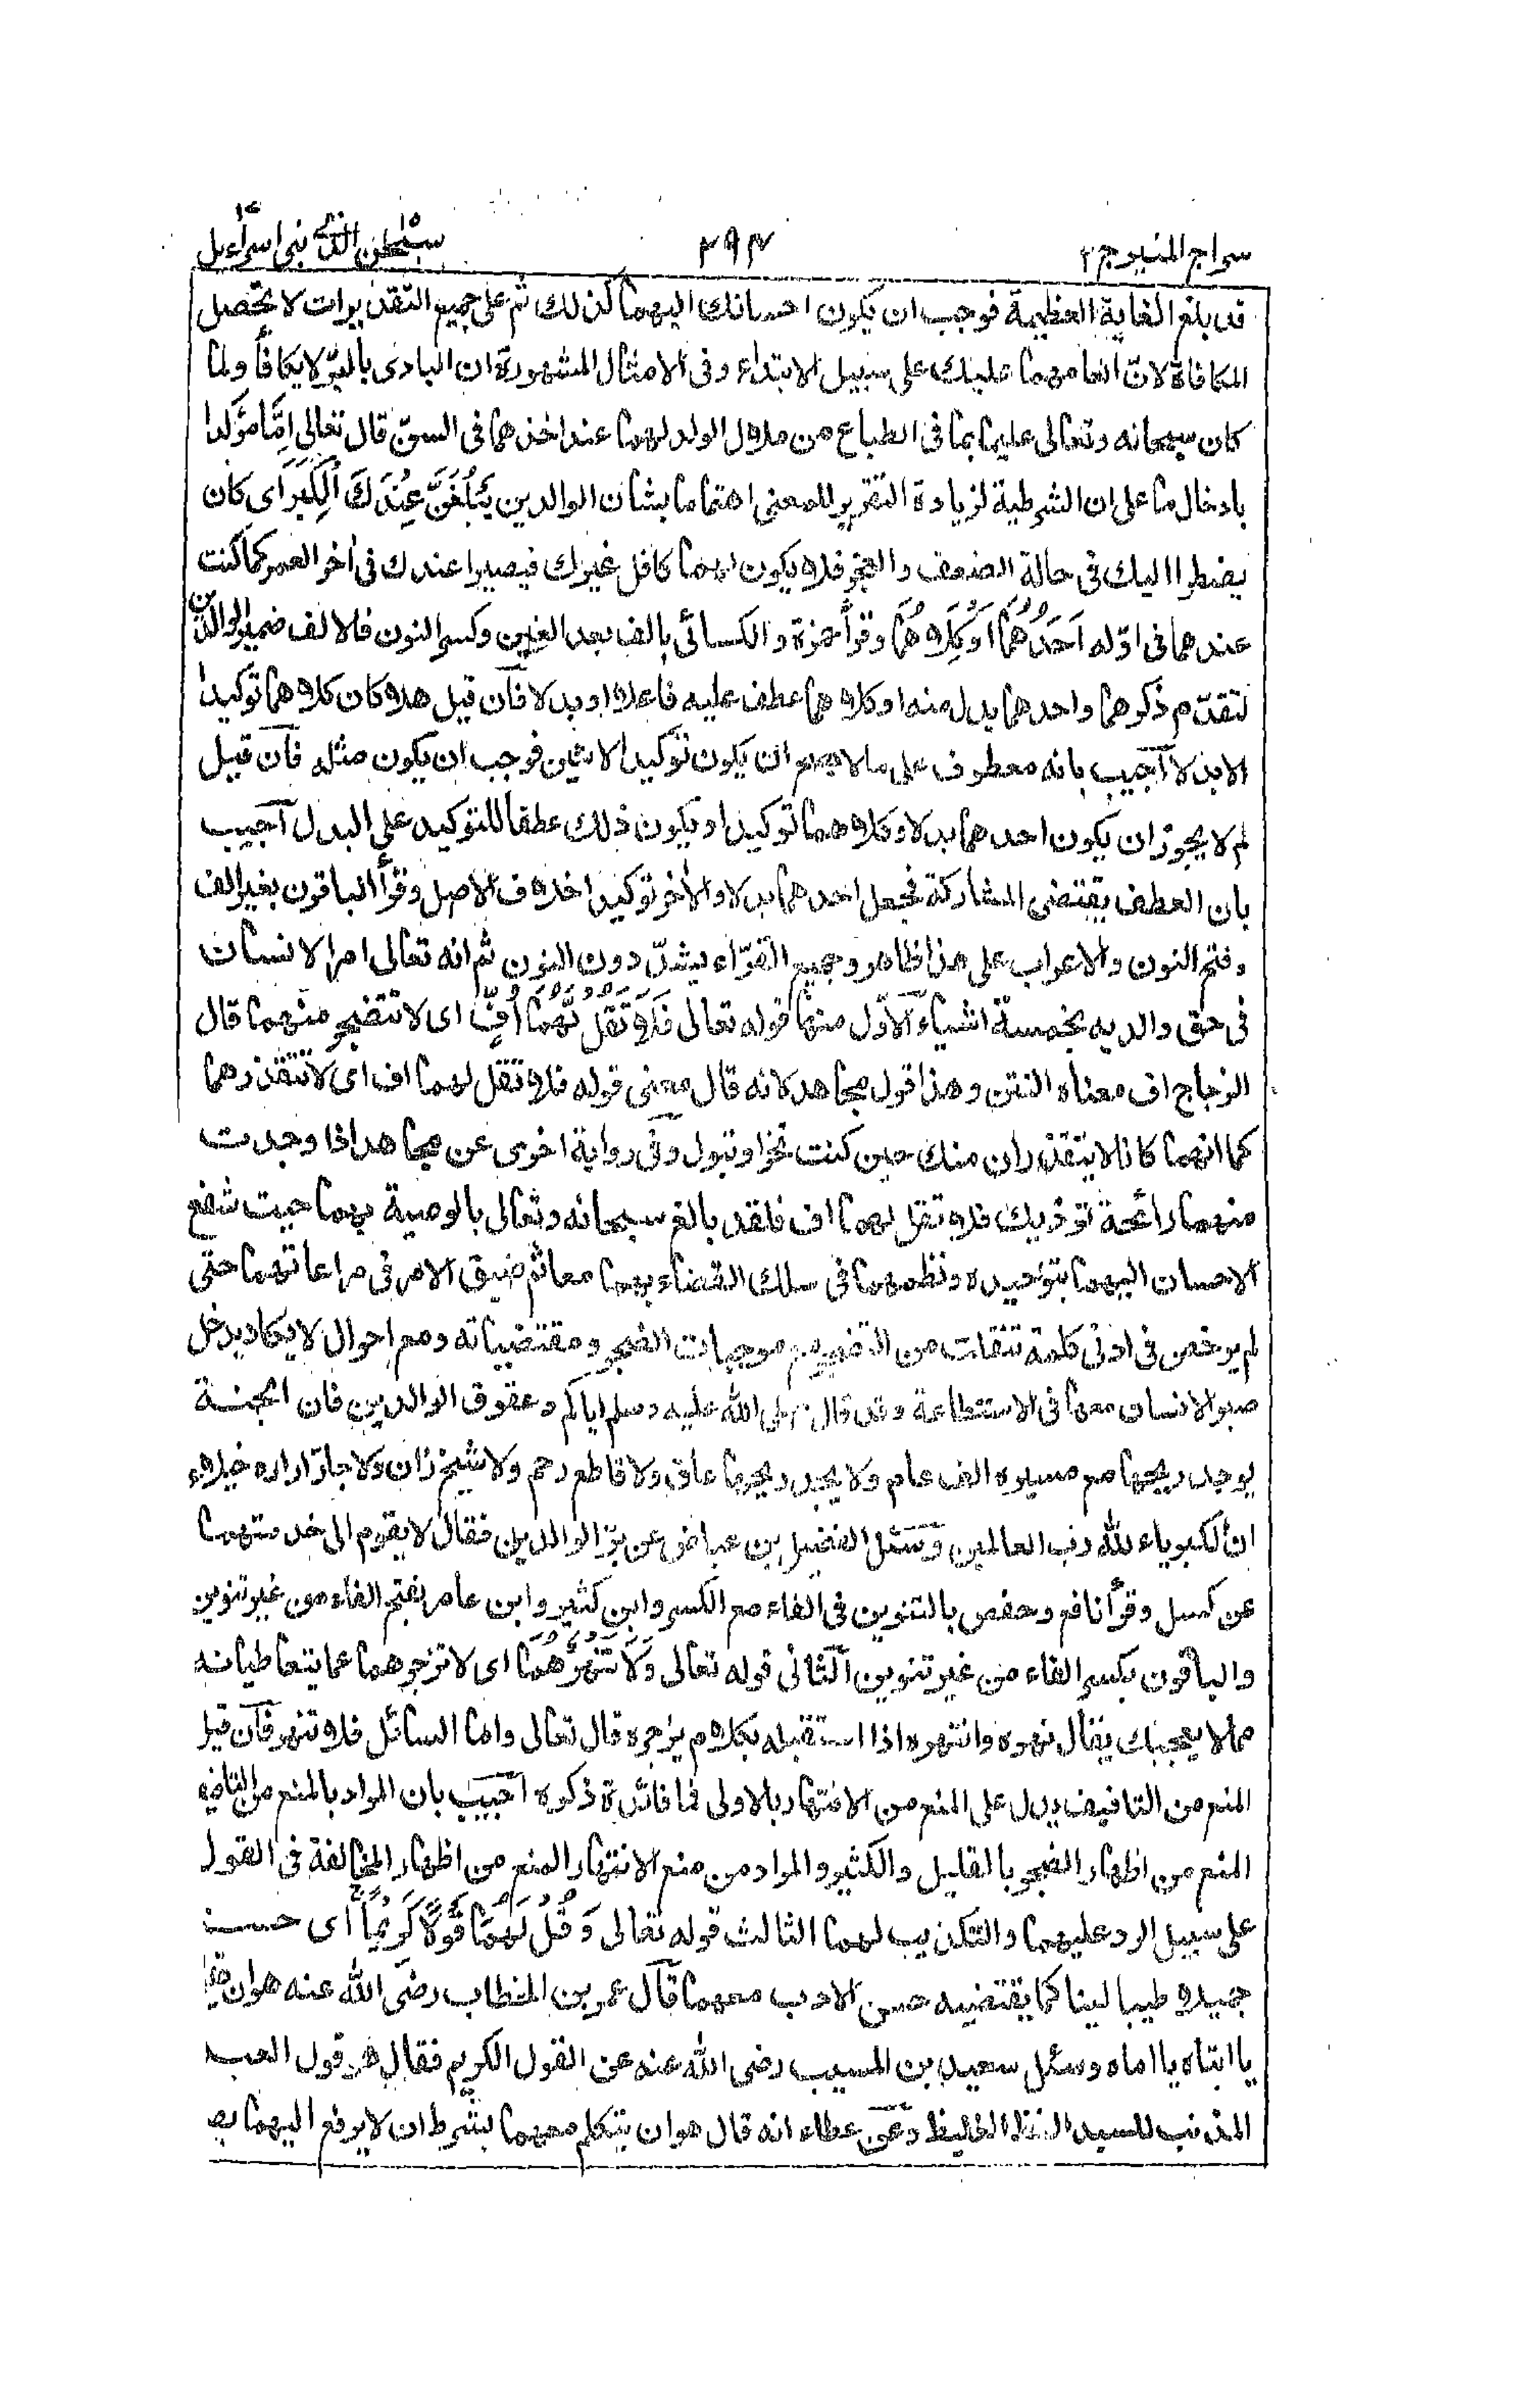 سراج المنير ج ٢
٢٩٣
سبحن الذى ١٥ بنى اسراءيل ١٧
قد بلغ الغاية العظيمة فوجب ان يكون احسانك اليهما كذلك ثم على جميع التقديرات لا تحصل
المكافاة لانّ انعامهما عليك على سبيل الابتداء وفى الامثال المشهورة ان البادى بالبرّ لا يكافأ ولما
كان سبحانه وتعالى عليما بما فى الطباع من ملال الولد لهما عند اخذهما فى السنّ قال تعالى اِمَّا مؤكدا
بادخال ما على ان الشرطية لزيادة التقرير للمعنى اهتماما بشان الوالدين يَبْلُغَنَّ عِنْدَكَ الْكِبَرَ اى كان
يضطرا اليك فى حالة الضعف والعجز فلا يكون لهما كافل غيرك فيصيرا عندك فى اخر العمر كما كنت
عندهما فى اوّله اَحَدُهُمَا اَوْ كِلَاهُمَا وقرأ حمزة والكسائى بالف بعد الغين وكسر النون فالالف ضمير الوالدين
لتقدّم ذكرهما واحدهما بدل منه او كلاهما عطف عليه فاعلا او بدلا فآن قيل هلا كان كلاهما توكيدا
لا بدلا آجيب بانه معطوف على ما لا يصح ان يكون توكيدا لاثنين فوجب ان يكون مثله فآن قيل
لم لا يجوز ان يكون احدهما بدلا وكلاهما توكيدا ويكون ذلك عطفا للتوكيد على البدل آجيب
بان العطف يقتضى المشاركة فجعل احدهما بدلا والاخر توكيدا خلاف الاصل وقرأ الباقون بغير الف
وفتح النون والاعراب على هذا ظاهر وجميع القرّاء يشدّدون النون ثم انه تعالى امر الانسان
فى حق والديه بخمسة اشياء آلاوّل منها قوله تعالى فَلَا تَقُلْ لَّهُمَا اُفٍّ اى لا تتضجر منهما قال
الزجاج اف معناه النتن وهذا قول مجاهد لانه قال معنى قوله فلا تقل لهما اف اى لا تتقذرهما
كما انهما كانا لا يتقذران منك حين كنت تخرا وتبول وفى رواية اخرى عن مجاهد اذا وجدت
منهما رائحة توذيك فلا تقل لهما اف فلقد بالغ سبحانه وتعالى بالوصية بهما حيث شفع
الاحسان اليهما بتوحيده ونظمهما فى سلك القضاء بهما معا ثم ضيق الامر فى مراعاتهما حتى
لم يرخص فى ادنى كلمة تنفلت من المتضجر مع موجبات الضجر ومقتضياته ومع احوال لا يكاد يدخل
صبر الانسان معها فى الاستطاعة وقد قال صلى الله عليه وسلم اياكم وعقوق الوالدين فان الجنة
يوجد ريحها من مسيرة الف عام ولا يجد ريحها عاق ولا قاطع رحم ولا شيخ زان ولا جارّ ازاره خيلاء
انّ الكبرياء لله رب العالمين وسئل الفضيل بن عياض عن برّ الوالدين فقال لا يقوم الى خدمتهما
عن كسل وقرأ نافع وحفص بالتنوين فى الفاء مع الكسر وابن كثير وابن عامر بفتح الفاء من غير تنوين
والباقون بكسر الفاء من غير تنوين آلثانى قوله تعالى وَلَا تَنْهَرْهُمَا اى لا تزجرهما عما يتعاطيانه
مما لا يعجبك يقال نهره وانتهره اذا استقبله بكلام يزجره قال تعالى واما السائل فلا تنهر فآن قيل
المنع من التافيف يدل على المنع من الانتهار بالاولى فما فائدة ذكره اجيب بان المراد بالمنع من التافيف
المنع من اظهار الضجر بالقليل والكثير والمراد من منع الانتهار المنع من اظهار المخالفة فى القول
على سبيل الرد عليهما والتكذيب لهما الثالث قوله تعالى وَقُلْ لَهُمَا قَوْلًا كَرِيْمًا اى حسنا
جميلا طيبا لينا كما يقتضيه حسن الادب معهما قآل عمر بن الخطاب رضى الله عنه هو ان
يا ابتاه يا اماه وسئل سعيد بن المسيب رضى الله عنه عن القول الكريم فقال هو قول العبد
المذنب للسيد الفظ الغليظ وعن عطاء انه قال هو ان يتكلم معهما بشرط ان لا يرفع اليهما